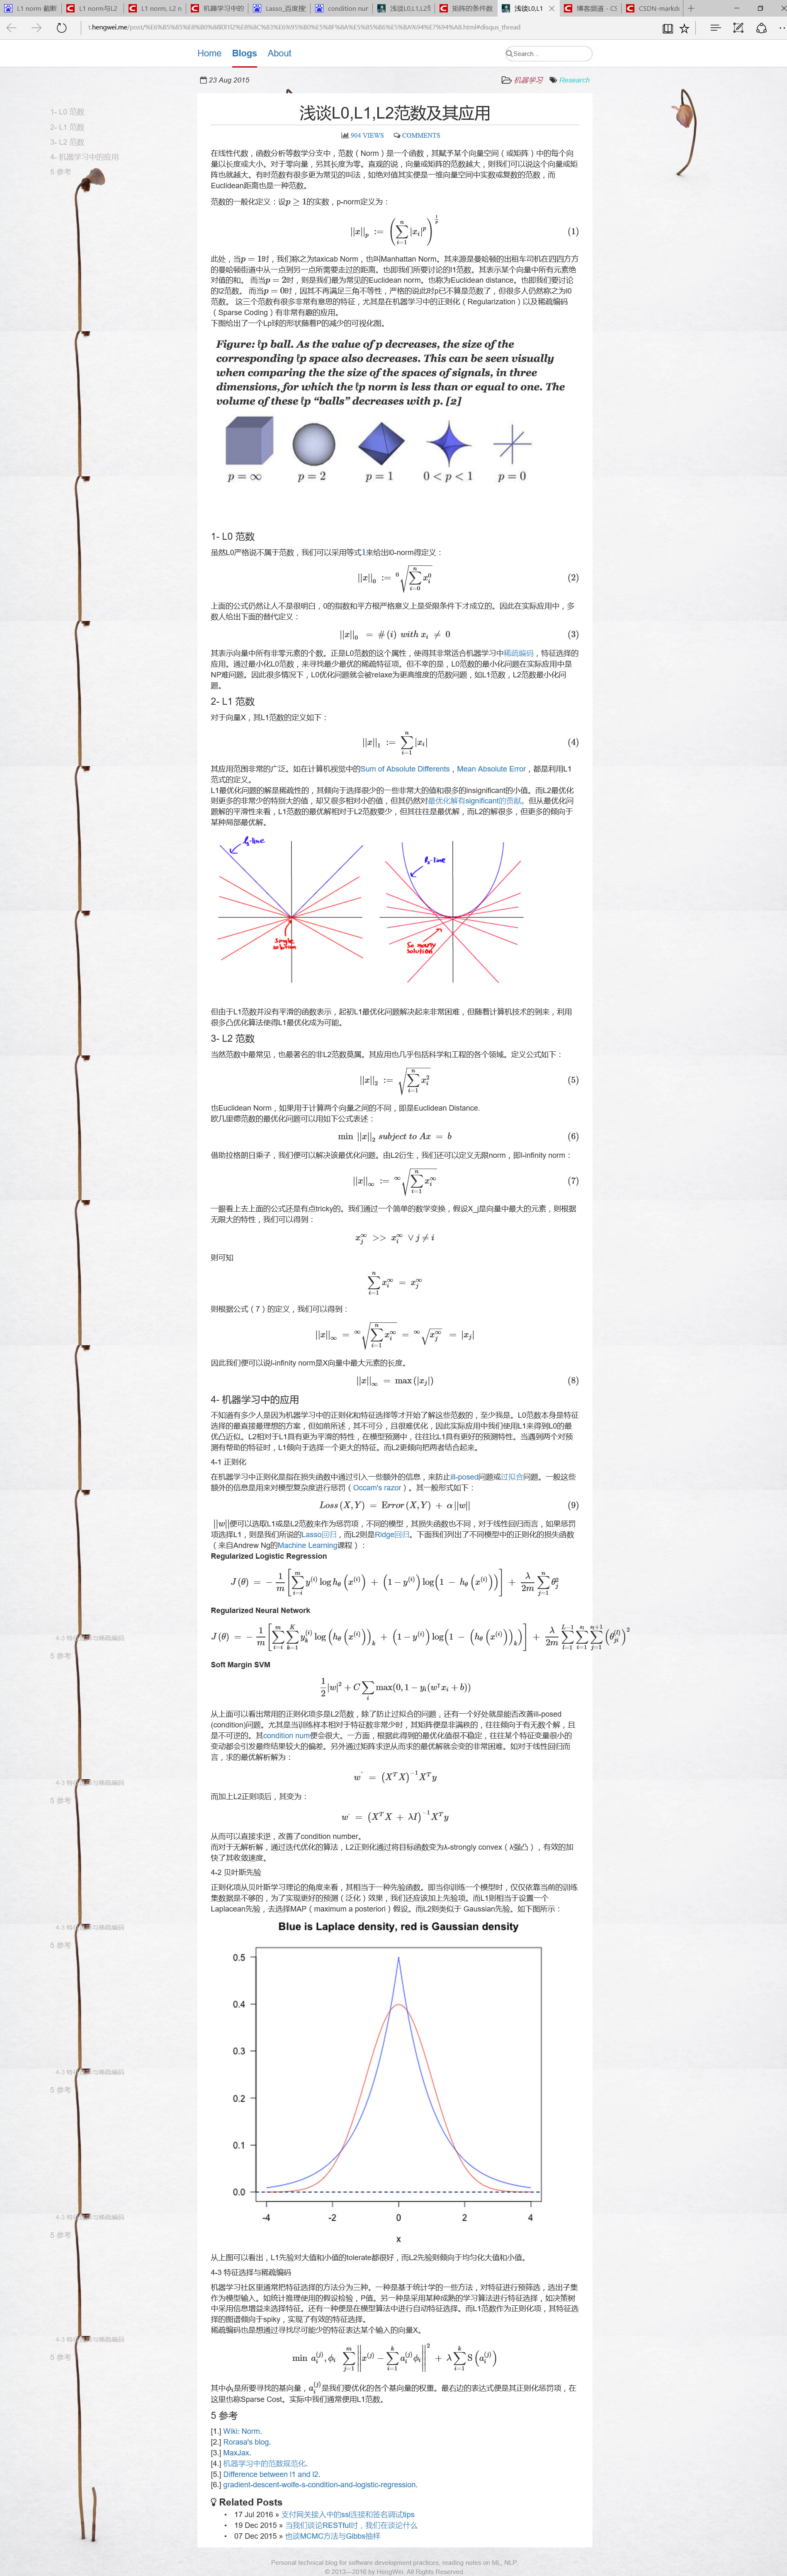 L1 norm 截断
L1 norm与L2
L1 norm, L2 n
机器学习中的
Lasso_百度搜
condition nur
浅谈L0,L1,L2范
矩阵的条件数
浅谈L0,L1
博客频道 - CS
CSDN-markdo
Home Blogs About
Search...
23 Aug 2015
机器学习 Research
1- L0 范数
2- L1 范数
3- L2 范数
4- 机器学习中的应用
5 参考
浅谈L0,L1,L2范数及其应用
904 VIEWS COMMENTS
在线性代数，函数分析等数学分支中，范数（Norm）是一个函数，其赋予某个向量空间（或矩阵）中的每个向
量以长度或大小。对于零向量，另其长度为零。直观的说，向量或矩阵的范数越大，则我们可以说这个向量或矩
阵也就越大。有时范数有很多更为常见的叫法，如绝对值其实便是一维向量空间中实数或复数的范数，而
Euclidean距离也是一种范数。
范数的一般化定义：设p ≥ 1的实数，p-norm定义为：
||x||_p := (∑_{i=1}^{n} |x_i|^p)^{1/p} (1)
此处，当p = 1时，我们称之为taxicab Norm，也叫Manhattan Norm。其来源是曼哈顿的出租车司机在四四方方
的曼哈顿街道中从一点到另一点所需要走过的距离。也即我们所要讨论的l1范数。其表示某个向量中所有元素绝
对值的和。 而当p = 2时，则是我们最为常见的Euclidean norm。也称为Euclidean distance。也即我们要讨论
的l2范数。 而当p = 0时，因其不再满足三角不等性，严格的说此时p已不算是范数了，但很多人仍然称之为l0
范数。 这三个范数有很多非常有意思的特征，尤其是在机器学习中的正则化（Regularization）以及稀疏编码
（Sparse Coding）有非常有趣的应用。
下图给出了一个Lp球的形状随着P的减少的可视化图。
Figure: ℓp ball. As the value of p decreases, the size of the
corresponding ℓp space also decreases. This can be seen visually
when comparing the the size of the spaces of signals, in three
dimensions, for which the ℓp norm is less than or equal to one. The
volume of these ℓp “balls” decreases with p. [2]
p = ∞ p = 2 p = 1 0 < p < 1 p = 0
1- L0 范数
虽然L0严格说不属于范数，我们可以采用等式1来给出l0-norm得定义：
||x||_0 := \sqrt[0]{∑_{i=0}^{n} x_i^0} (2)
上面的公式仍然让人不是很明白，0的指数和平方根严格意义上是受限条件下才成立的。因此在实际应用中，多
数人给出下面的替代定义：
||x||_0 = #(i) with x_i ≠ 0 (3)
其表示向量中所有非零元素的个数。正是L0范数的这个属性，使得其非常适合机器学习中稀疏编码，特征选择的
应用。通过最小化L0范数，来寻找最少最优的稀疏特征项。但不幸的是，L0范数的最小化问题在实际应用中是
NP难问题。因此很多情况下，L0优化问题就会被relaxe为更高维度的范数问题，如L1范数，L2范数最小化问
题。
2- L1 范数
对于向量X，其L1范数的定义如下：
||x||_1 := ∑_{i=1}^{n} |x_i| (4)
其应用范围非常的广泛。如在计算机视觉中的Sum of Absolute Differents，Mean Absolute Error，都是利用L1
范式的定义。
L1最优化问题的解是稀疏性的，其倾向于选择很少的一些非常大的值和很多的insignificant的小值。而L2最优化
则更多的非常少的特别大的值，却又很多相对小的值，但其仍然对最优化解有significant的贡献。但从最优化问
题解的平滑性来看，L1范数的最优解相对于L2范数要少，但其往往是最优解，而L2的解很多，但更多的倾向于
某种局部最优解。
l₁-line
single
solution
l₂-line
So many
solution
但由于L1范数并没有平滑的函数表示，起初L1最优化问题解决起来非常困难，但随着计算机技术的到来，利用
很多凸优化算法使得L1最优化成为可能。
3- L2 范数
当然范数中最常见，也最著名的非L2范数莫属。其应用也几乎包括科学和工程的各个领域。定义公式如下：
||x||_2 := \sqrt{∑_{i=1}^{n} x_i^2} (5)
也Euclidean Norm，如果用于计算两个向量之间的不同，即是Euclidean Distance.
欧几里德范数的最优化问题可以用如下公式表述：
min ||x||_2 subject to Ax = b (6)
借助拉格朗日乘子，我们便可以解决该最优化问题。由L2衍生，我们还可以定义无限norm，即l-infinity norm：
||x||_∞ := \sqrt[∞]{∑_{i=1}^{n} x_i^∞} (7)
一眼看上去上面的公式还是有点tricky的。我们通过一个简单的数学变换，假设X_j是向量中最大的元素，则根据
无限大的特性，我们可以得到：
x_j^∞ >> x_i^∞ ∨ j ≠ i
则可知
∑_{i=1}^{n} x_i^∞ = x_j^∞
则根据公式（7）的定义，我们可以得到：
||x||_∞ = \sqrt[∞]{∑_{i=1}^{n} x_i^∞} = \sqrt[∞]{x_j^∞} = |x_j|
因此我们便可以说l-infinity norm是X向量中最大元素的长度。
||x||_∞ = max(|x_j|) (8)
4- 机器学习中的应用
不知道有多少人是因为机器学习中的正则化和特征选择等才开始了解这些范数的，至少我是。L0范数本身是特征
选择的最直接最理想的方案，但如前所述，其不可分，且很难优化，因此实际应用中我们使用L1来得到L0的最
优凸近似。L2相对于L1具有更为平滑的特性，在模型预测中，往往比L1具有更好的预测特性。当遇到两个对预
测有帮助的特征时，L1倾向于选择一个更大的特征。而L2更倾向把两者结合起来。
4-1 正则化
在机器学习中正则化是指在损失函数中通过引入一些额外的信息，来防止ill-posed问题或过拟合问题。一般这些
额外的信息是用来对模型复杂度进行惩罚（Occam's razor）。其一般形式如下：
Loss(X, Y) = Error(X, Y) + α||w|| (9)
||w||便可以选取L1或是L2范数来作为惩罚项，不同的模型，其损失函数也不同，对于线性回归而言，如果惩罚
项选择L1，则是我们所说的Lasso回归，而L2则是Ridge回归。下面我们列出了不同模型中的正则化的损失函数
（来自Andrew Ng的Machine Learning课程）：
Regularized Logistic Regression
J(θ) = −\frac{1}{m}[∑_{i=i}^{m} y^{(i)} log h_θ(x^{(i)}) + (1 − y^{(i)}) log(1 − h_θ(x^{(i)}))] + \frac{λ}{2m} ∑_{j=1}^{n} θ_j^2
Regularized Neural Network
J(θ) = −\frac{1}{m}[∑_{i=i}^{m} ∑_{k=1}^{K} y_k^{(i)} log(h_θ(x^{(i)}))_k + (1 − y^{(i)}) log(1 − (h_θ(x^{(i)}))_k)] + \frac{λ}{2m} ∑_{l=1}^{L-1} ∑_{i=1}^{s_l} ∑_{j=1}^{s_l+1} (θ_{ji}^{(l)})^2
Soft Margin SVM
\frac{1}{2}|w|^2 + C ∑_i max(0, 1 − y_i(w^⊤x_i + b))
从上面可以看出常用的正则化项多是L2范数，除了防止过拟合的问题，还有一个好处就是能否改善ill-posed
(condition)问题。尤其是当训练样本相对于特征数非常少时，其矩阵便是非满秩的，往往倾向于有无数个解，且
是不可逆的。其condition num便会很大。一方面，根据此得到的最优化值很不稳定，往往某个特征变量很小的
变动都会引发最终结果较大的偏差。另外通过矩阵求逆从而求的最优解就会变的非常困难。如对于线性回归而
言，求的最优解析解为：
w^* = (X^T X)^{-1} X^T y
而加上L2正则项后，其变为：
w^* = (X^T X + λI)^{-1} X^T y
从而可以直接求逆，改善了condition number。
而对于无解析解，通过迭代优化的算法，L2正则化通过将目标函数变为λ-strongly convex（λ强凸），有效的加
快了其收敛速度。
4-2 贝叶斯先验
正则化项从贝叶斯学习理论的角度来看，其相当于一种先验函数。即当你训练一个模型时，仅仅依靠当前的训练
集数据是不够的，为了实现更好的预测（泛化）效果，我们还应该加上先验项。而L1则相当于设置一个
Laplacean先验，去选择MAP（maximum a posteriori）假设。而L2则类似于 Gaussian先验。如下图所示：
Blue is Laplace density, red is Gaussian density
0.5
0.4
0.3
0.2
0.1
0.0
-4 -2 0 2 4
x
从上图可以看出，L1先验对大值和小值的tolerate都很好，而L2先验则倾向于均匀化大值和小值。
4-3 特征选择与稀疏编码
机器学习社区里通常把特征选择的方法分为三种。一种是基于统计学的一些方法，对特征进行预筛选，选出子集
作为模型输入。如统计推理使用的假设检验，P值。另一种是采用某种成熟的学习算法进行特征选择，如决策树
中采用信息增益来选择特征。还有一种便是在模型算法中进行自动特征选择。而L1范数作为正则化项，其特征选
择的图谱倾向于spiky，实现了有效的特征选择。
稀疏编码也是想通过寻找尽可能少的特征表达某个输入的向量X。
min a_i^{(j)}, ϕ_i ∑_{j=1}^{m} ||x^{(j)} − ∑_{i=1}^{k} a_i^{(j)} ϕ_i||^2 + λ ∑_{i=1}^{k} S(a_i^{(j)})
其中ϕ_i是所要寻找的基向量，a_i^{(j)}是我们要优化的各个基向量的权重。最右边的表达式便是其正则化惩罚项，在
这里也称Sparse Cost。实际中我们通常使用L1范数。
5 参考
[1.] Wiki: Norm.
[2.] Rorasa's blog.
[3.] MaxJax.
[4.] 机器学习中的范数规范化.
[5.] Difference between l1 and l2.
[6.] gradient-descent-wolfe-s-condition-and-logistic-regression.
Related Posts
17 Jul 2016 » 支付网关接入中的ssl连接和签名调试tips
19 Dec 2015 » 当我们谈论RESTful时，我们在谈论什么
07 Dec 2015 » 也谈MCMC方法与Gibbs抽样
Personal technical blog for software development practices, reading notes on ML, NLP.
© 2013—2016 by HengWei. All Rights Reserved